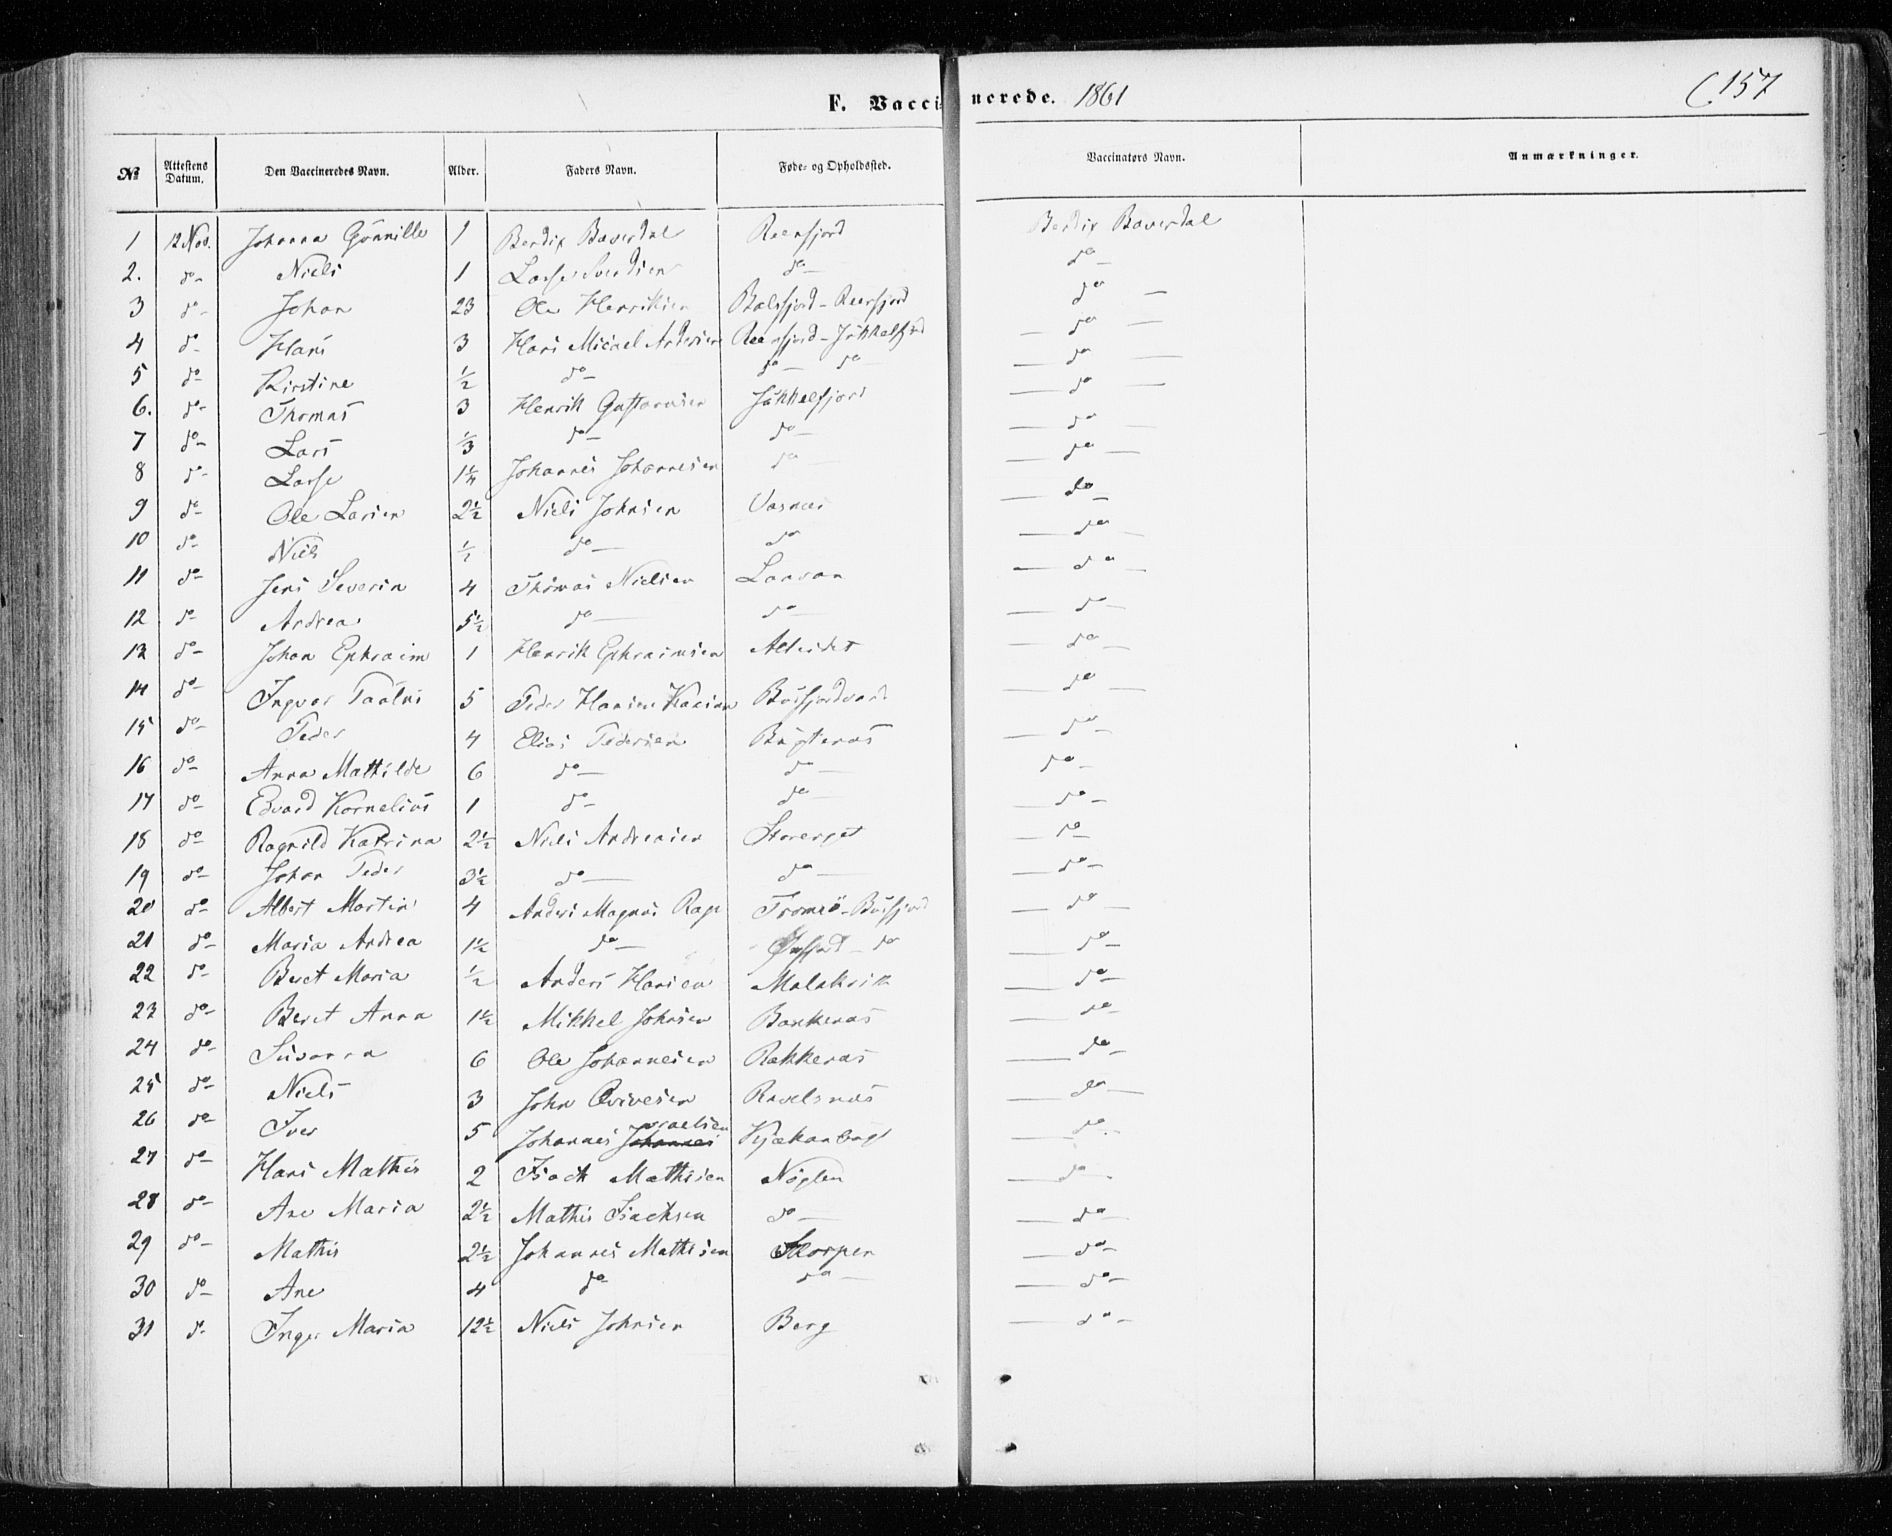 F. Vaccinerede. 1861 157
№ Attestens Datum. Den Vaccineredes Navn. Alder. Faders Navn. Føde- og Opholdssted. Vaccinatørs Navn. Anmærkninger.
1 12 Nov. Johanna Gunnille 1 Bendix Baverdal Reenfjord Bendix Baverdal
2. do Niels 1 Lasse do do
3 do Johan 23 Ole Henriksen Balsfjord - Reenfjord do
4 do Hans 3 Hans Micael Andersen Reenfjord - Jökkelfjord do
5 do Kirstine ½ do do do do
6. do Thomas 3 Henrik Gustavsen Jökkelfjord do
7 do Lars ⅓ do do do
8 do Lasse 1¼ Johannes Johannesen do do
9 do Ole Larsen 2½ Niels Johnsen do
10 do Niels ½ do do do
11 do Jens Severin 4 Thomas Nielsen do
12 do Andrea 5½ do do do
13 do Johan Ephraim 1 Henrik Ephraimsen Alteidet do
14 do Ingvar 5 Peder Hansen do
15 do Peder 4 Elias Pedersen do
16 do Anna Mathilde 6 do do do
17 do Edvard Kornelius 1 do do do
18 do Ragnild Katrina 2½ Niels Andreasen do
19 do Johan Peder 3½ do do do
20 do Albert Martin 4 Anders Magnus Tromsö - do
21 do Maria Andrea 1½ do do do
22 do Beret Maria ½ Anders Hansen do
23 do Beret Anna 1½ Mikkel Johnsen do
24 do Susanna 6 Ole Johannesen Rakkenæs do
25 do Niels 3 John Ravelsnæs do
26 do Iver 5 Johannes Johannes do
27 do Hans Mathis 2 Isack Mathisen Nöglen do
28 do Ane Maria 2½ Mathis Isachsen do do
29 do Mathis 2½ Johannes Mathisen Skorpen do
30 do Ane 4 do do do
31 do Inger Maria 12½ Niels Johnsen Berg do